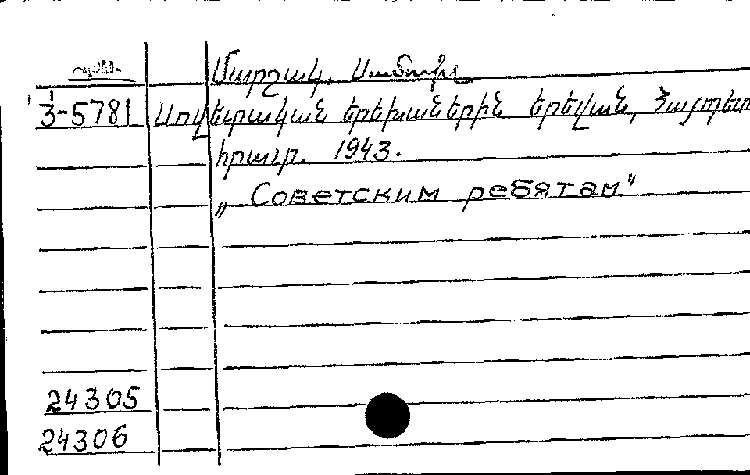 Մարշակ, Սամուիլ
3-5781 Սովետական երեխաներին երեվան, Հայպետ
հրատ. 1943.
„Советским ребятам"
24305
24306